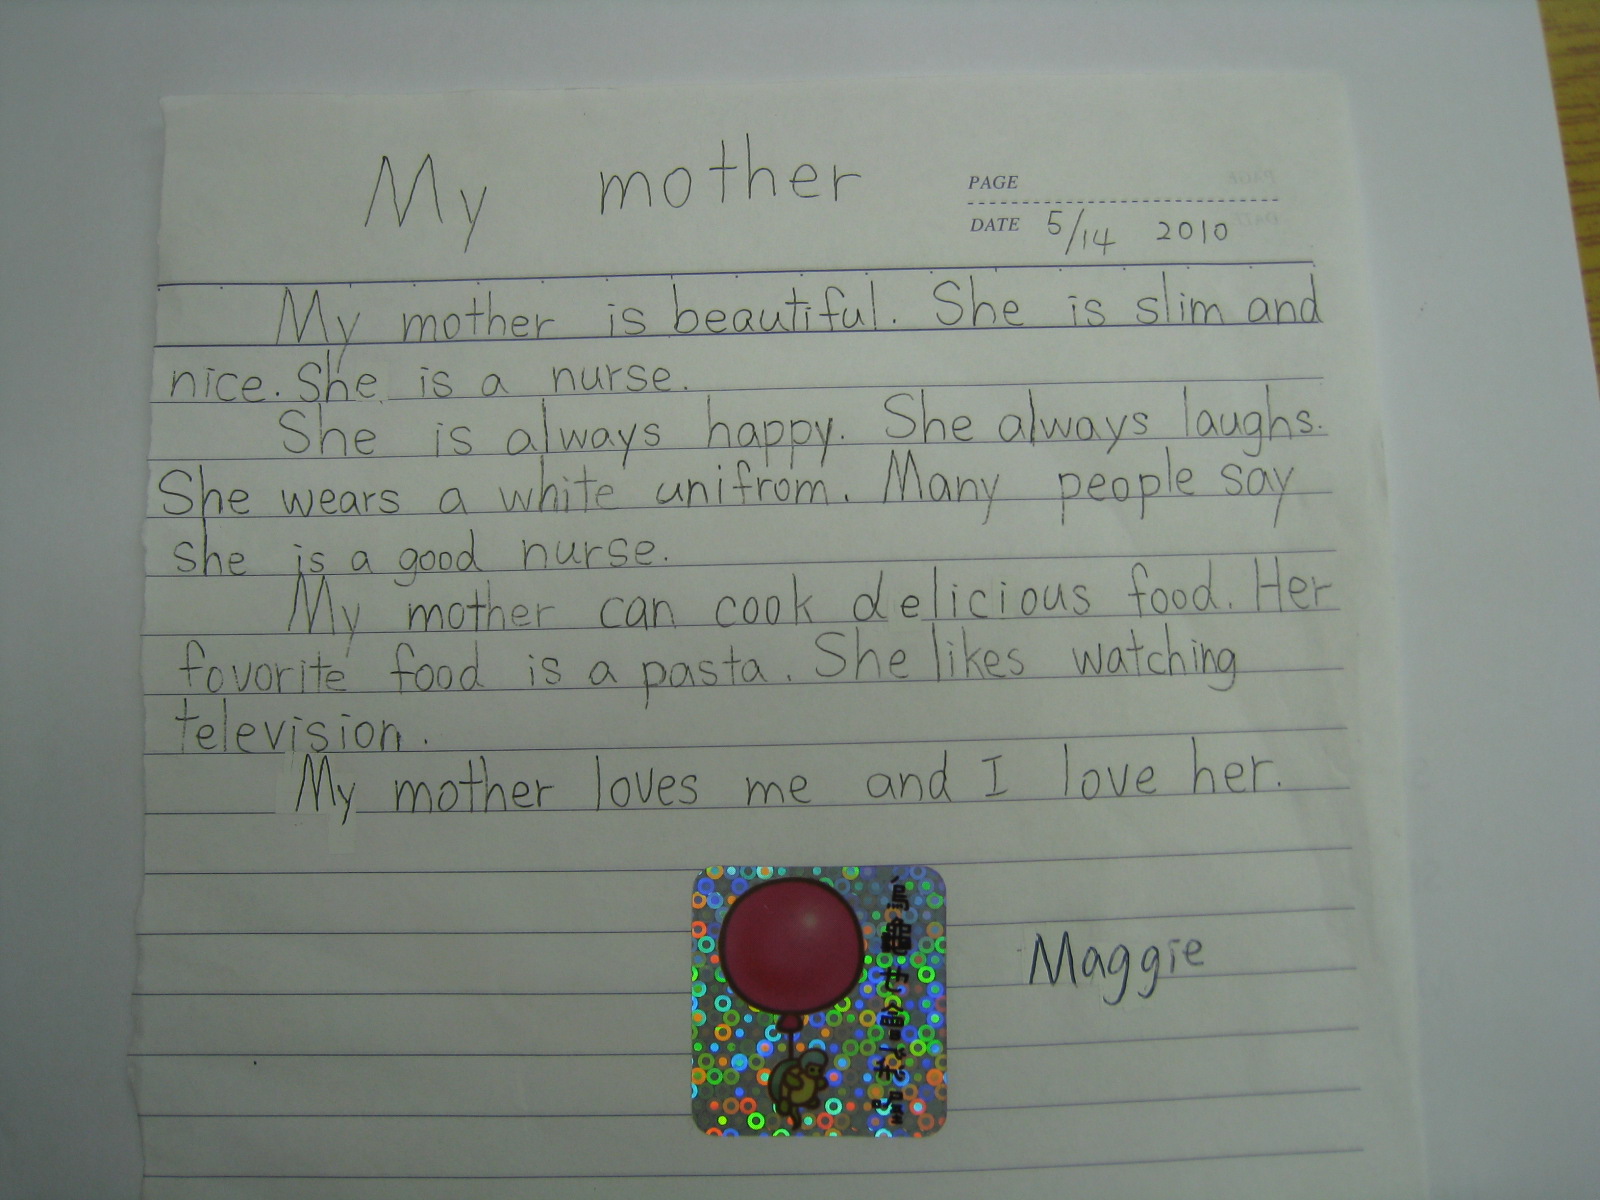 My mother
PAGE
DATE 5/14 2010
My mother is beautiful. She is slim and
nice. She is a nurse.
She is always happy. She always laughs.
She wears a white unifrom. Many people say
she is a good nurse.
My mother can cook delicious food. Her
fovorite food is a pasta. She likes watching
television.
My mother loves me and I love her.
Maggie